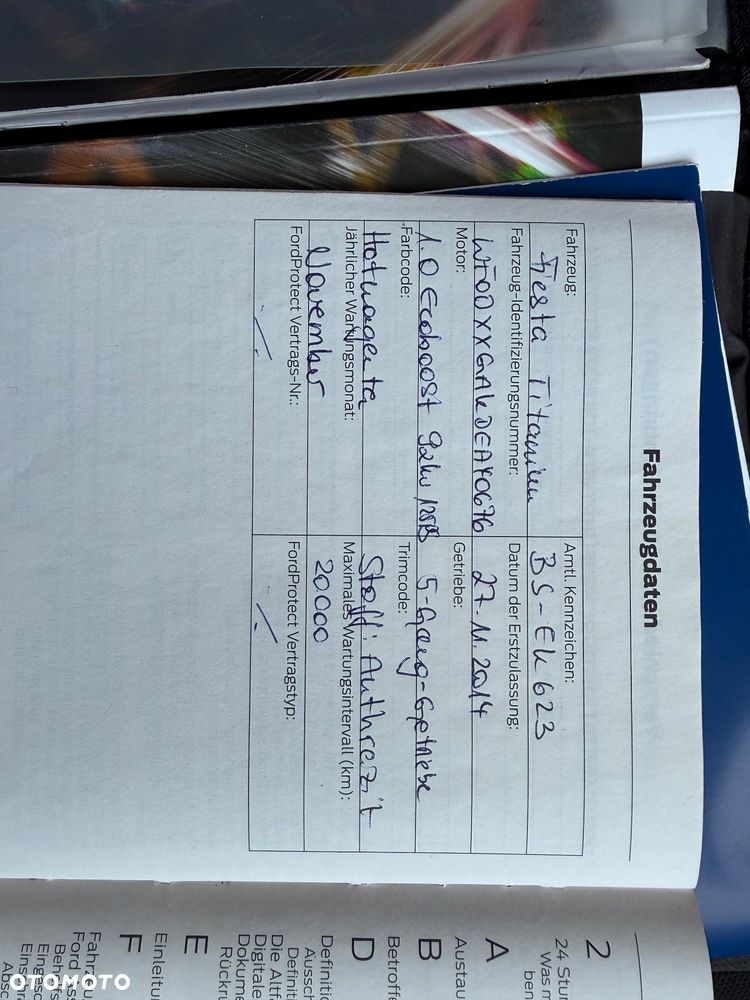 Fahrzeugdaten
Fahrzeug:
Fiesta Titanium
Amtl. Kennzeichen:
BS-EK 623
Fahrzeug-Identifizierungsnummer:
WF0DXXGAKDEAY0676
Datum der Erstzulassung:
27.11.2014
Motor:
1.0 Ecoboost 92kw 125PS
Getriebe:
5-Gang-Getriebe
Farbcode:
Hotmagenta
Trimcode:
Stoff: Anthrazit
Jährlicher Wartungsmonat:
November
Maximales Wartungsintervall (km):
20000
FordProtect Vertrags-Nr.:
FordProtect Vertragstyp:
2
24 Stu
Was m
ben
A
Austau
B
Betroffe
D
Definitio
Aussch
Definit
Die Altf
Digitale
Dokume
Rückru
E
Einleitu
F
Fahrzeu
Ford
Behe
Eingesc
Einschr
Absc
OTOMOTO